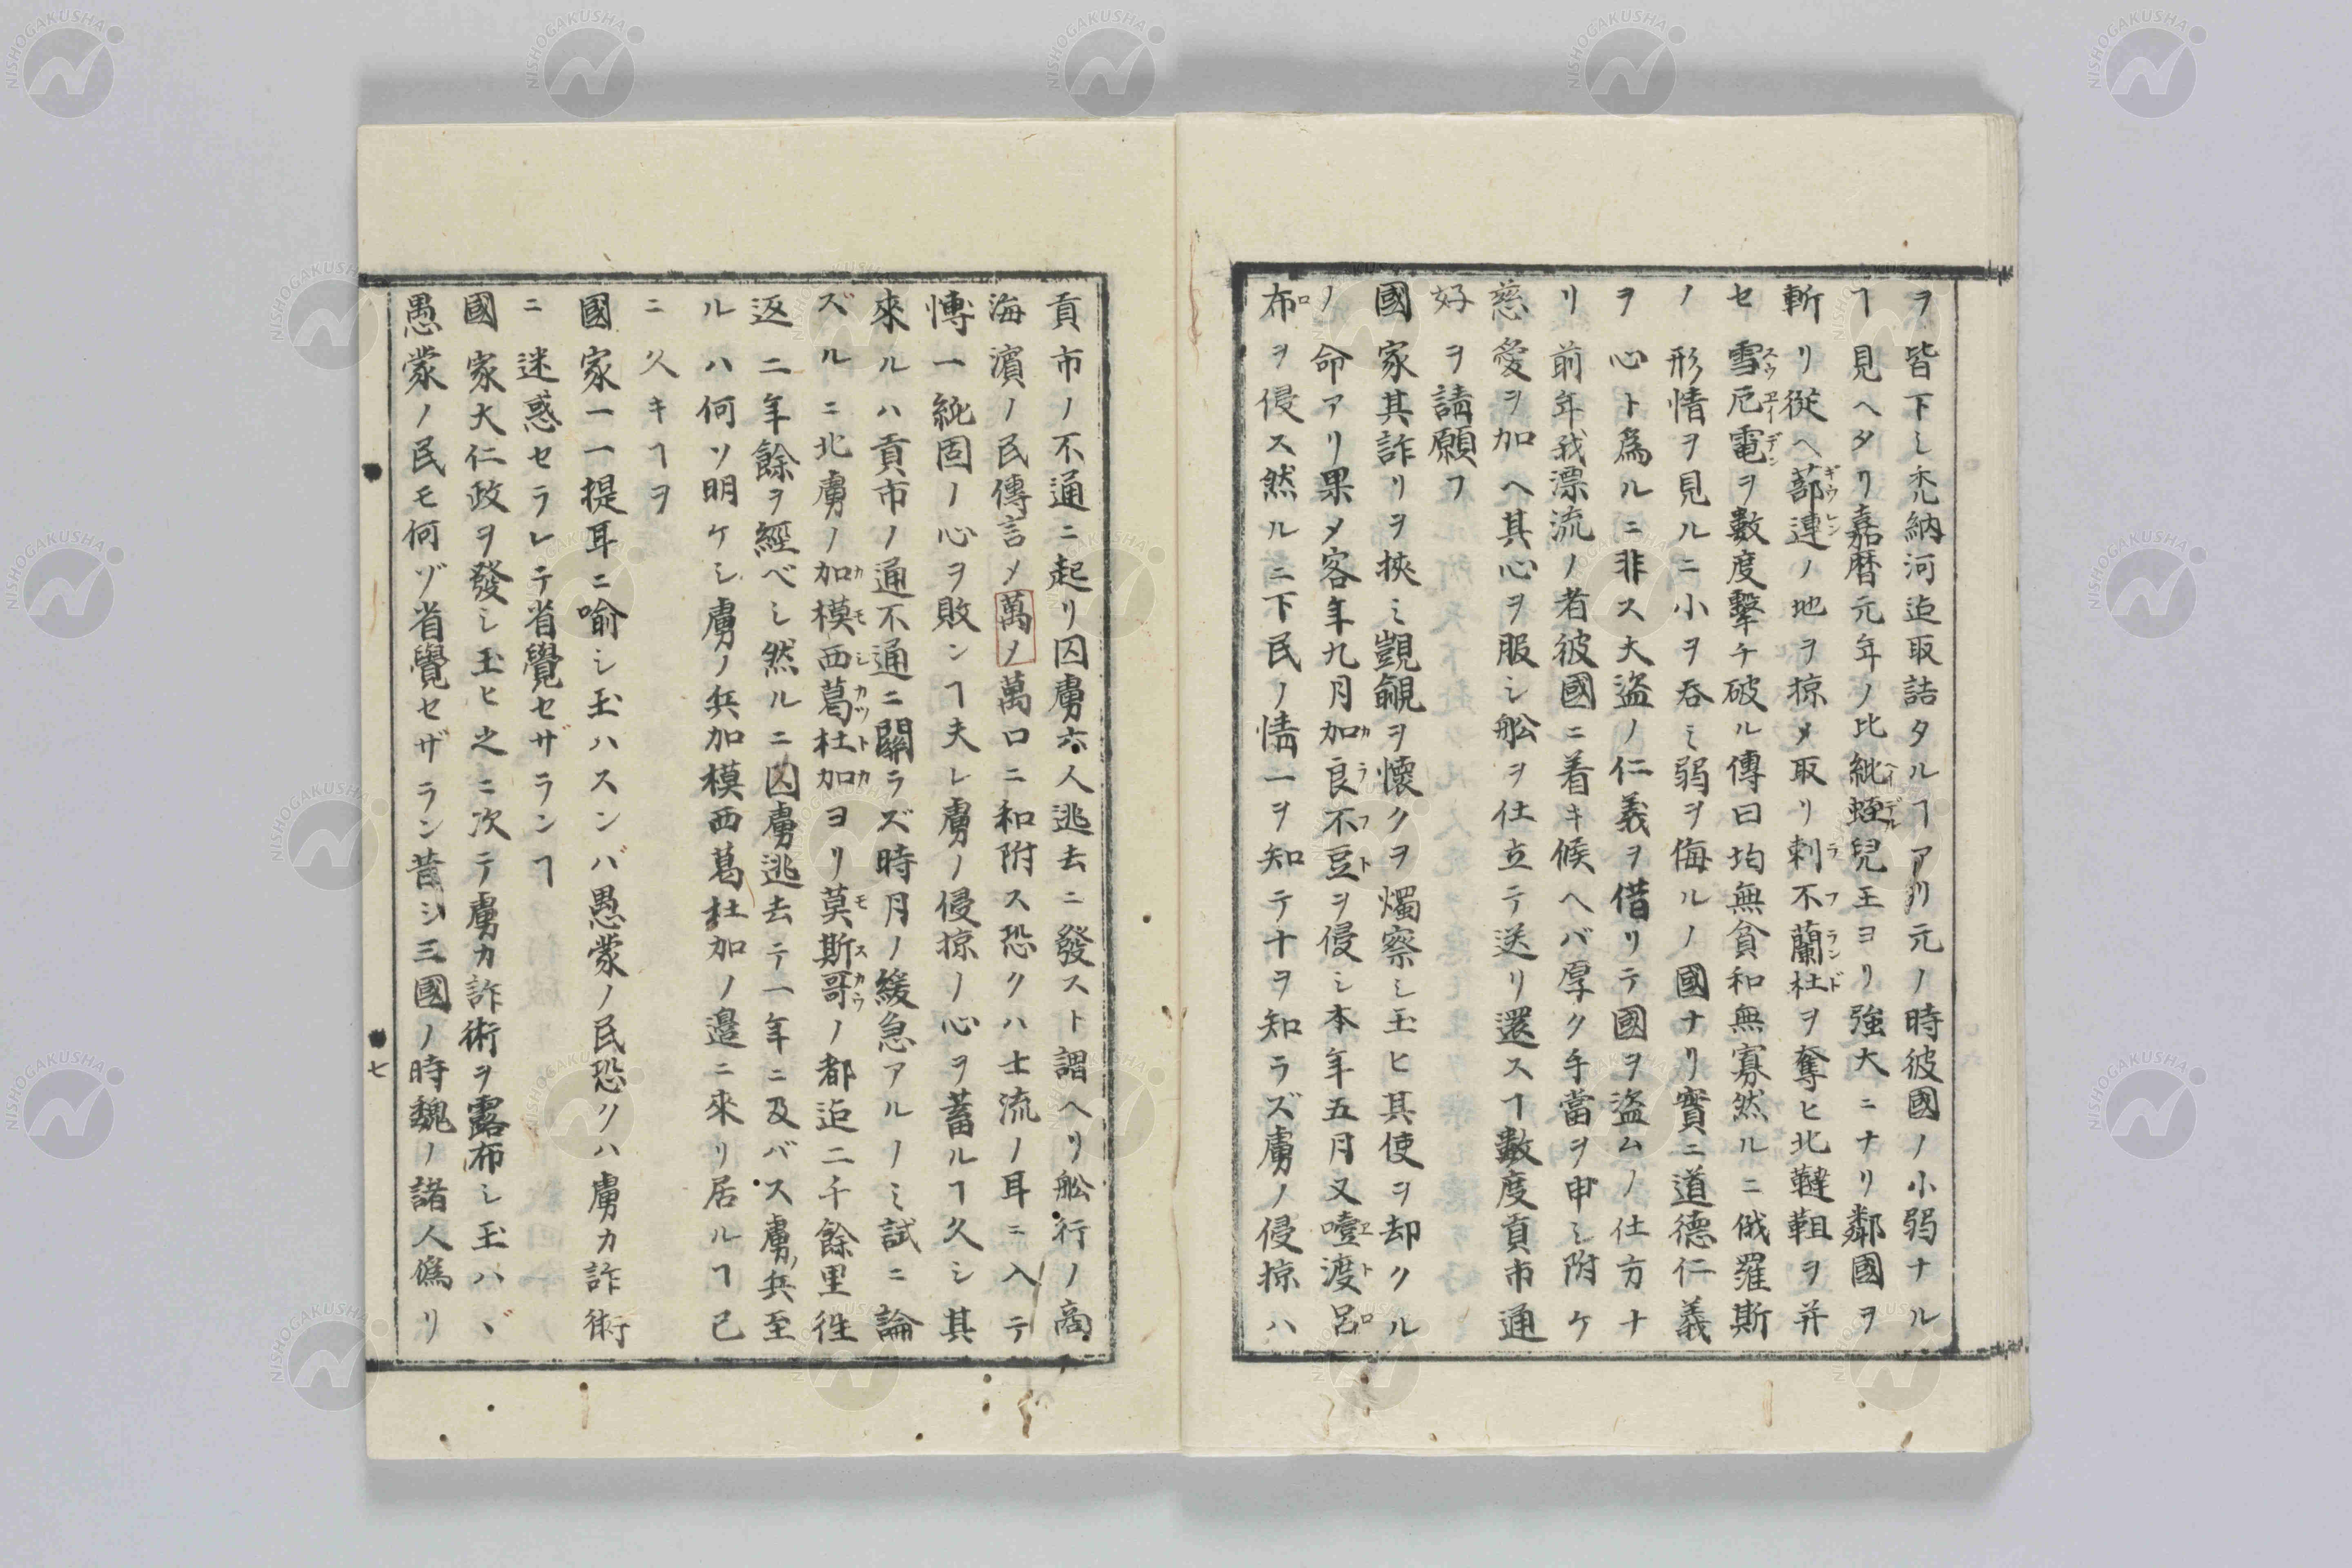 ヲ皆下シ禿納河迠取詰タルヿアリ元ノ時彼國ノ小弱ナル
ヿ見ヘタリ嘉曆元年ノ比紕蛭兒王ヨリ強大ニナリ鄰國ヲ
斬リ從ヘ蔀連ノ地ヲ掠メ取リ刺不蘭杜ヲ奪ヒ北韃靼ヲ并
セ雪厄電ヲ數度擊チ破ル傳曰均無貧和無寡然ルニ俄羅斯
ノ形情ヲ見ルニ小ヲ吞ミ弱ヲ侮ルノ國ナリ實ニ道德仁義
ヲ心ト爲ルニ非ス大盜ノ仁義ヲ借リテ國ヲ盜ムノ仕方ナ
リ前年我漂流ノ者彼國ニ着キ候ヘバ厚ク手當ヲ申シ附ケ
慈愛ヲ加ヘ其心ヲ服シ舩ヲ仕立テ送リ還スヿ數度貢市通
好ヲ請願フ
國家其詐リヲ挾ミ覬覦ヲ懷クヲ燭察シ玉ヒ其使ヲ却クル
ノ命アリ果メ客年九月加良不豆ヲ侵シ本年五月又噎渡呂
布ヲ侵ス然ルニ下民ノ情一ヲ知テ十ヲ知ラズ虜ノ侵掠ハ
貢市ノ不通ニ起リ囚虜六人逃去ニ發スト謂ヘリ舩行ノ商
海濱ノ民傳言メ萬ノ萬口ニ和附ス恐クハ士流ノ耳ニ入テ
慱一純固ノ心ヲ敗ンヿ夫レ虜ノ侵掠ノ心ヲ蓄ルヿ久シ其
來ルハ貢市ノ通不通ニ關ラズ時月ノ緩急アルノミ試ニ論
ズルニ北虜ノ加模西葛杜加ヨリ莫斯哥ノ都迠二千餘里徃
返二年餘ヲ經ベシ然ルニ囚虜逃去テ一年ニ及バス虜ノ兵至
ルハ何ソ明ケシ虜ノ兵加模西葛杜加ノ邊ニ來リ居ルヿ已
ニ久キヿヲ
國家一一提耳ニ喻シ玉ハスンバ愚蒙ノ民恐クハ虜カ詐術
ニ迷惑セラレテ省覺セザランヿ
國家大仁政ヲ發シ玉ヒ之ニ次テ虜カ詐術ヲ露布シ玉ハヾ
愚蒙ノ民モ何ゾ省覺セザラン昔シ三國ノ時魏ノ諸人僞リ
七